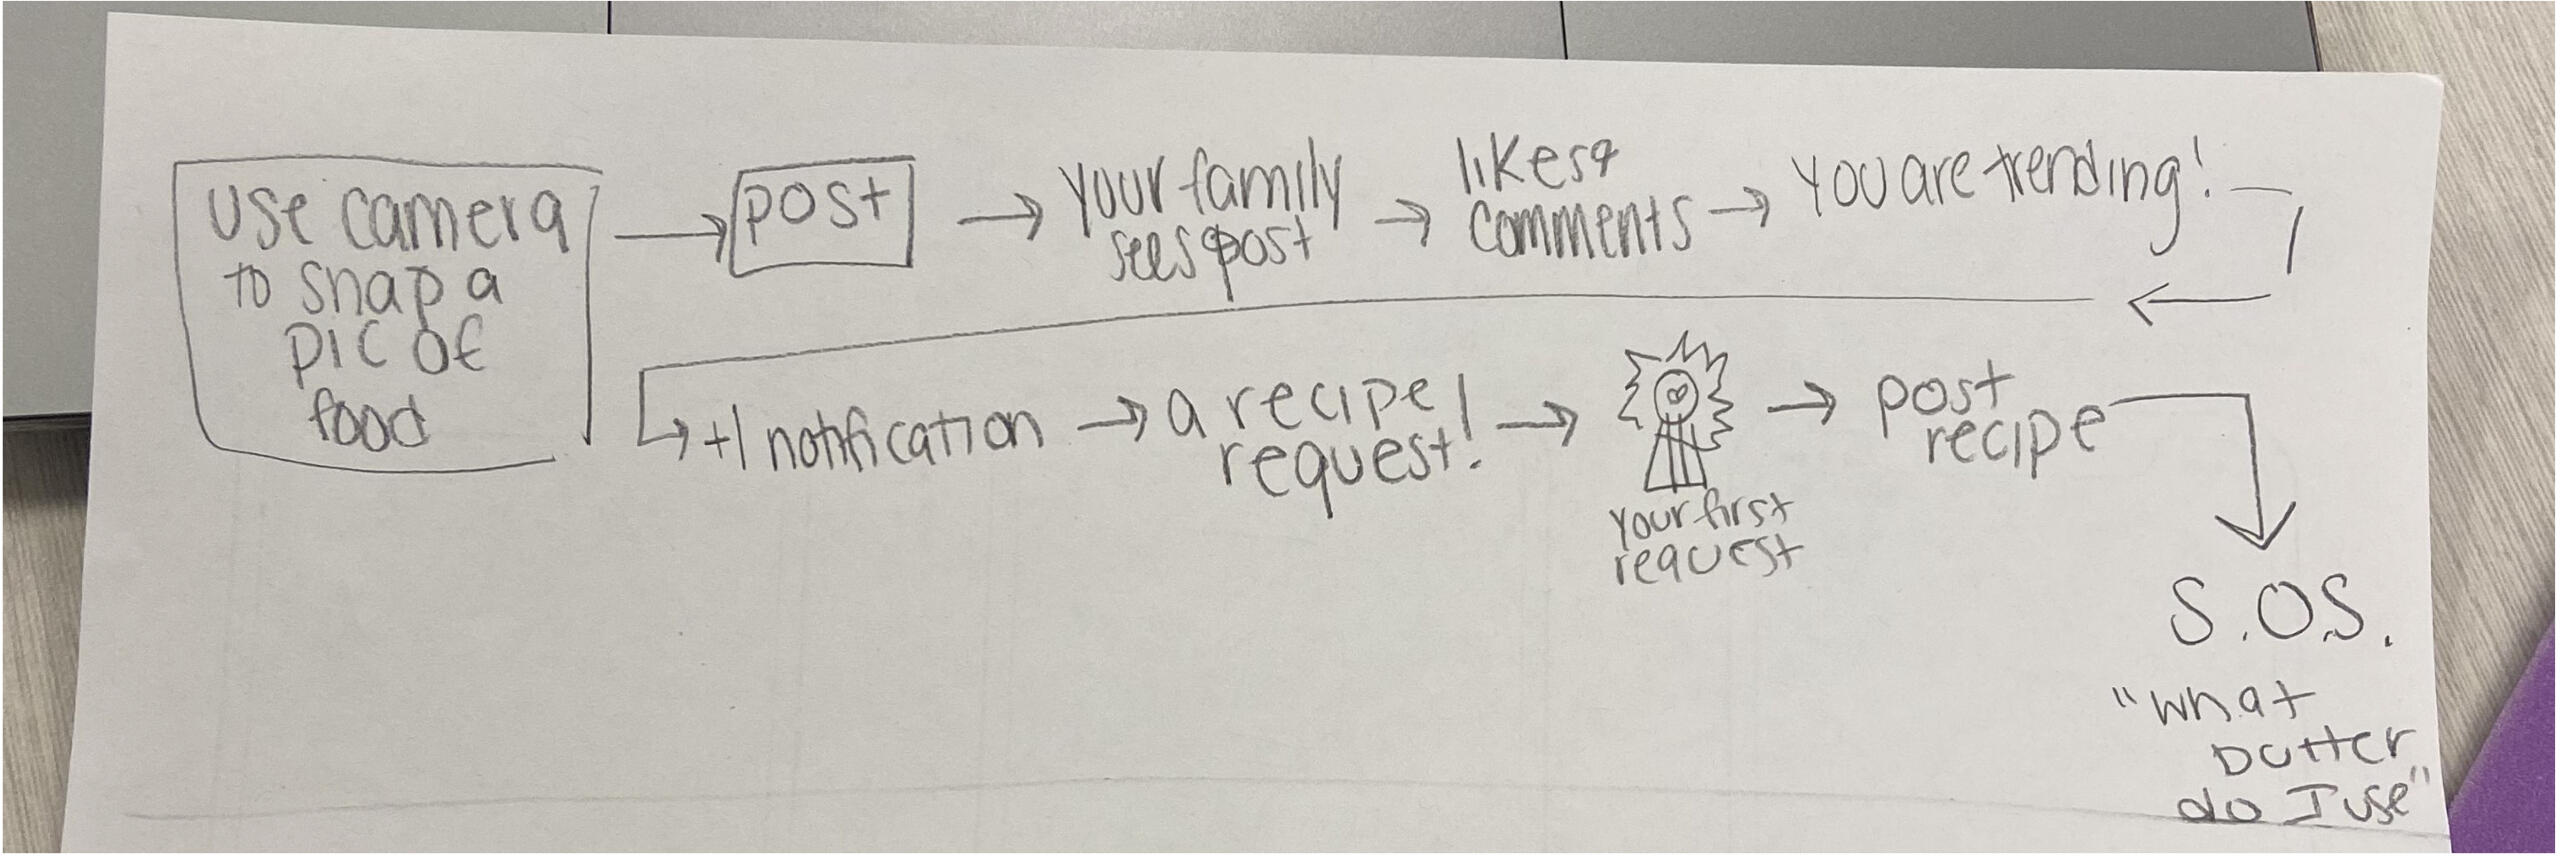 use camera
to snap a
pic of
food
post
your family
sees post
likes &
comments
you are trending!
+1 notification
a recipe
request!
your first
request
post
recipe
S.O.S.
"what
butter
do I use"